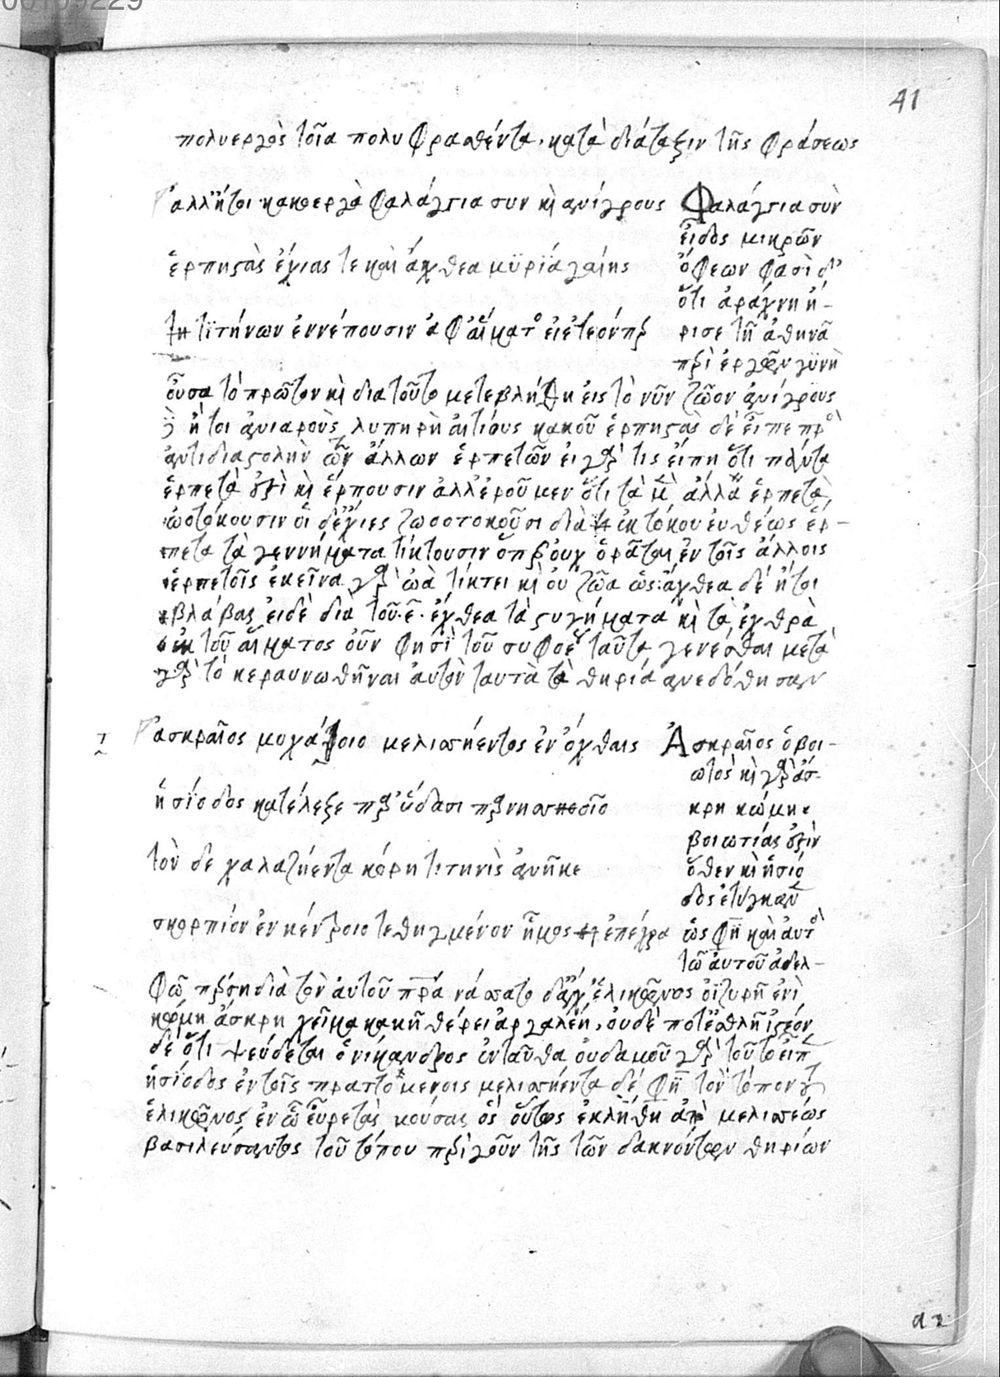 41
πολυεργὸς τοῖα πολυφρασθέντα· κατὰ διάταξιν τῆς φράσεως
ἀλλ' ἤτοι κακοεργὰ φαλάγγια συν κὶ ἀνίγρους
ἑρπηστὰς ἔχιας τε καὶ ἄχθεα μϋρία γαίης
τιτήνων ἐννέπουσιν ἀφ' αἵματος εἰ ἐτεόν περ
Φαλάγγια σὺν
εἶδος μικρῶν
ὄφεων φασὶ δ'
ὅτι ἀράχνη ἤ-
ρισε τῆ ἀθηνᾶ
περὶ ἔργων γϋνὴ
οὖσα τὸ πρῶτον κὶ δια τοῦτο μετεβλήθη εἰς τὸ νῦν ζῶον ἀνίγρους
ἤτοι ἀνιαροὺς λυπηρὴ αἰτίους κακοῦ ἑρπηστὰς δὲ εἶπε πρὸς
ἀντιδιαστολὴν τῶν ἄλλων ἑρπετῶν εἰ γὰρ τις εἴπη ὅτι πάντα
ἑρπετὰ ἐστὶ κὶ ἕρπουσιν ἀλλ' ἐροῦμεν ὅτι τὰ μὲν ἄλλα ἑρπετὰ
ὠοτόκουσιν οἱ δὲ ἔχιες ζωοτοκοῦσι διὰ ἐκ τόκου ευθέως ἑρ-
πετα τὰ γεννήματα τίκτουσιν ὅπερ οὐχ ὁρᾶται ἐν τοῖς ἄλλοις
ἑρπετοῖς ἐκεῖνα γὰρ ὠὰ τίκτει κὶ οὐ ζῶα ὡς· ἄχθεα δέ ἤτοι
βλάβας εἰ δὲ διὰ τοῦ· ε· ἔχθεα τὰ στυγήματα κὶ τὰ ἐχθρὰ
ἐκ τοῦ αἵματος οὖν φησὶ τοῦ τυφοέως ταῦτα γενέσθαι μετὰ
γὰρ τὸ κεραυνωθῆναι αὐτὸν ταυτὰ τὰ θηρία ἀνεδόθησαν
ἀσκραῖος μυχάτοιο μελισσήεντος ἐν ὄχθαις
ἡσίοδος κατέλεξε παρ' ὕδασι περμησσοῖο
τὸν δε χαλαζήεντα κόρη τιτηνὶς ἀνῆκε
σκορπίον ἐν κέντροιο τεθηγμένον ἦμος ἐπέχρα
Ἀσκραῖος ὁ βοι-
ωτὸς κὶ γὰρ ἄσ-
κρη κώμη
βοιωτίας ἐστὶν
ὅθεν κὶ ἡσίο
δος ἐτύγχανε
ὥς φη καὶ αυτὸς
τῶ αὐτοῦ ἀδελ-
φῶ πέρση διὰ τὸν αὐτοῦ πρα νάσσατο δ' ἄγχ' ἑλικῶνος ὀϊζυρῆ ἐνὶ
κώμη ἄσκρη χεῖμα κακῆ θέρει ἀργαλέη, οὐδέ ποτ' ἐσθλῆ ἰστέον
δὲ ὅτι ψεύδεται ὁ νίκανδρος ἐνταῦθα οὐδαμοῦ γὰρ τοῦτο εἶπεν
ἡσίοδος ἐν τοῖς πραττομένοις μελισσήεντα δέ φη τὸν τόπον
ἑλικῶνος ἐν ὧ εὕρε τὰς μούσας ὃς οὕτως ἐκλήθη ἀπὸ μελισσέως
βασιλεύσαντος τοῦ τόπου περὶ γοῦν τῆς τῶν δακνόντων θηρίων